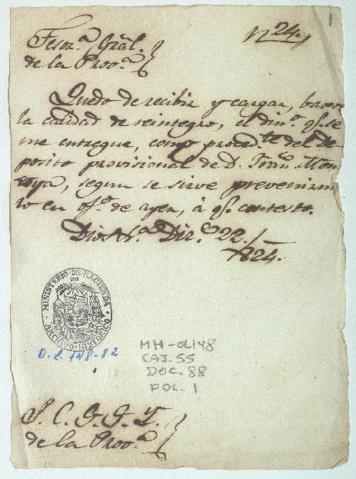 1
Nº 24.
Tesor.ª Gral.
de la Prov.ª
Quedo de recibir y cargar, bajo
la calidad de reintegro, el din.º q.e se
me entregue, como proced.te del De
posito provisional de D. Fran.co Mon
toya, segun se sirve prevenirm
lo en of.º de ayer, á q.e contesto.
Dios Dic.e 22/
1824.
MINISTERIO DE HACIENDA
ARCHIVO HISTORICO
O.L. 148-82
MH-OL148
CAJ. 55
DOC. 88
FOL. 1
S. C. G. I. Y.
de la Prov.ª